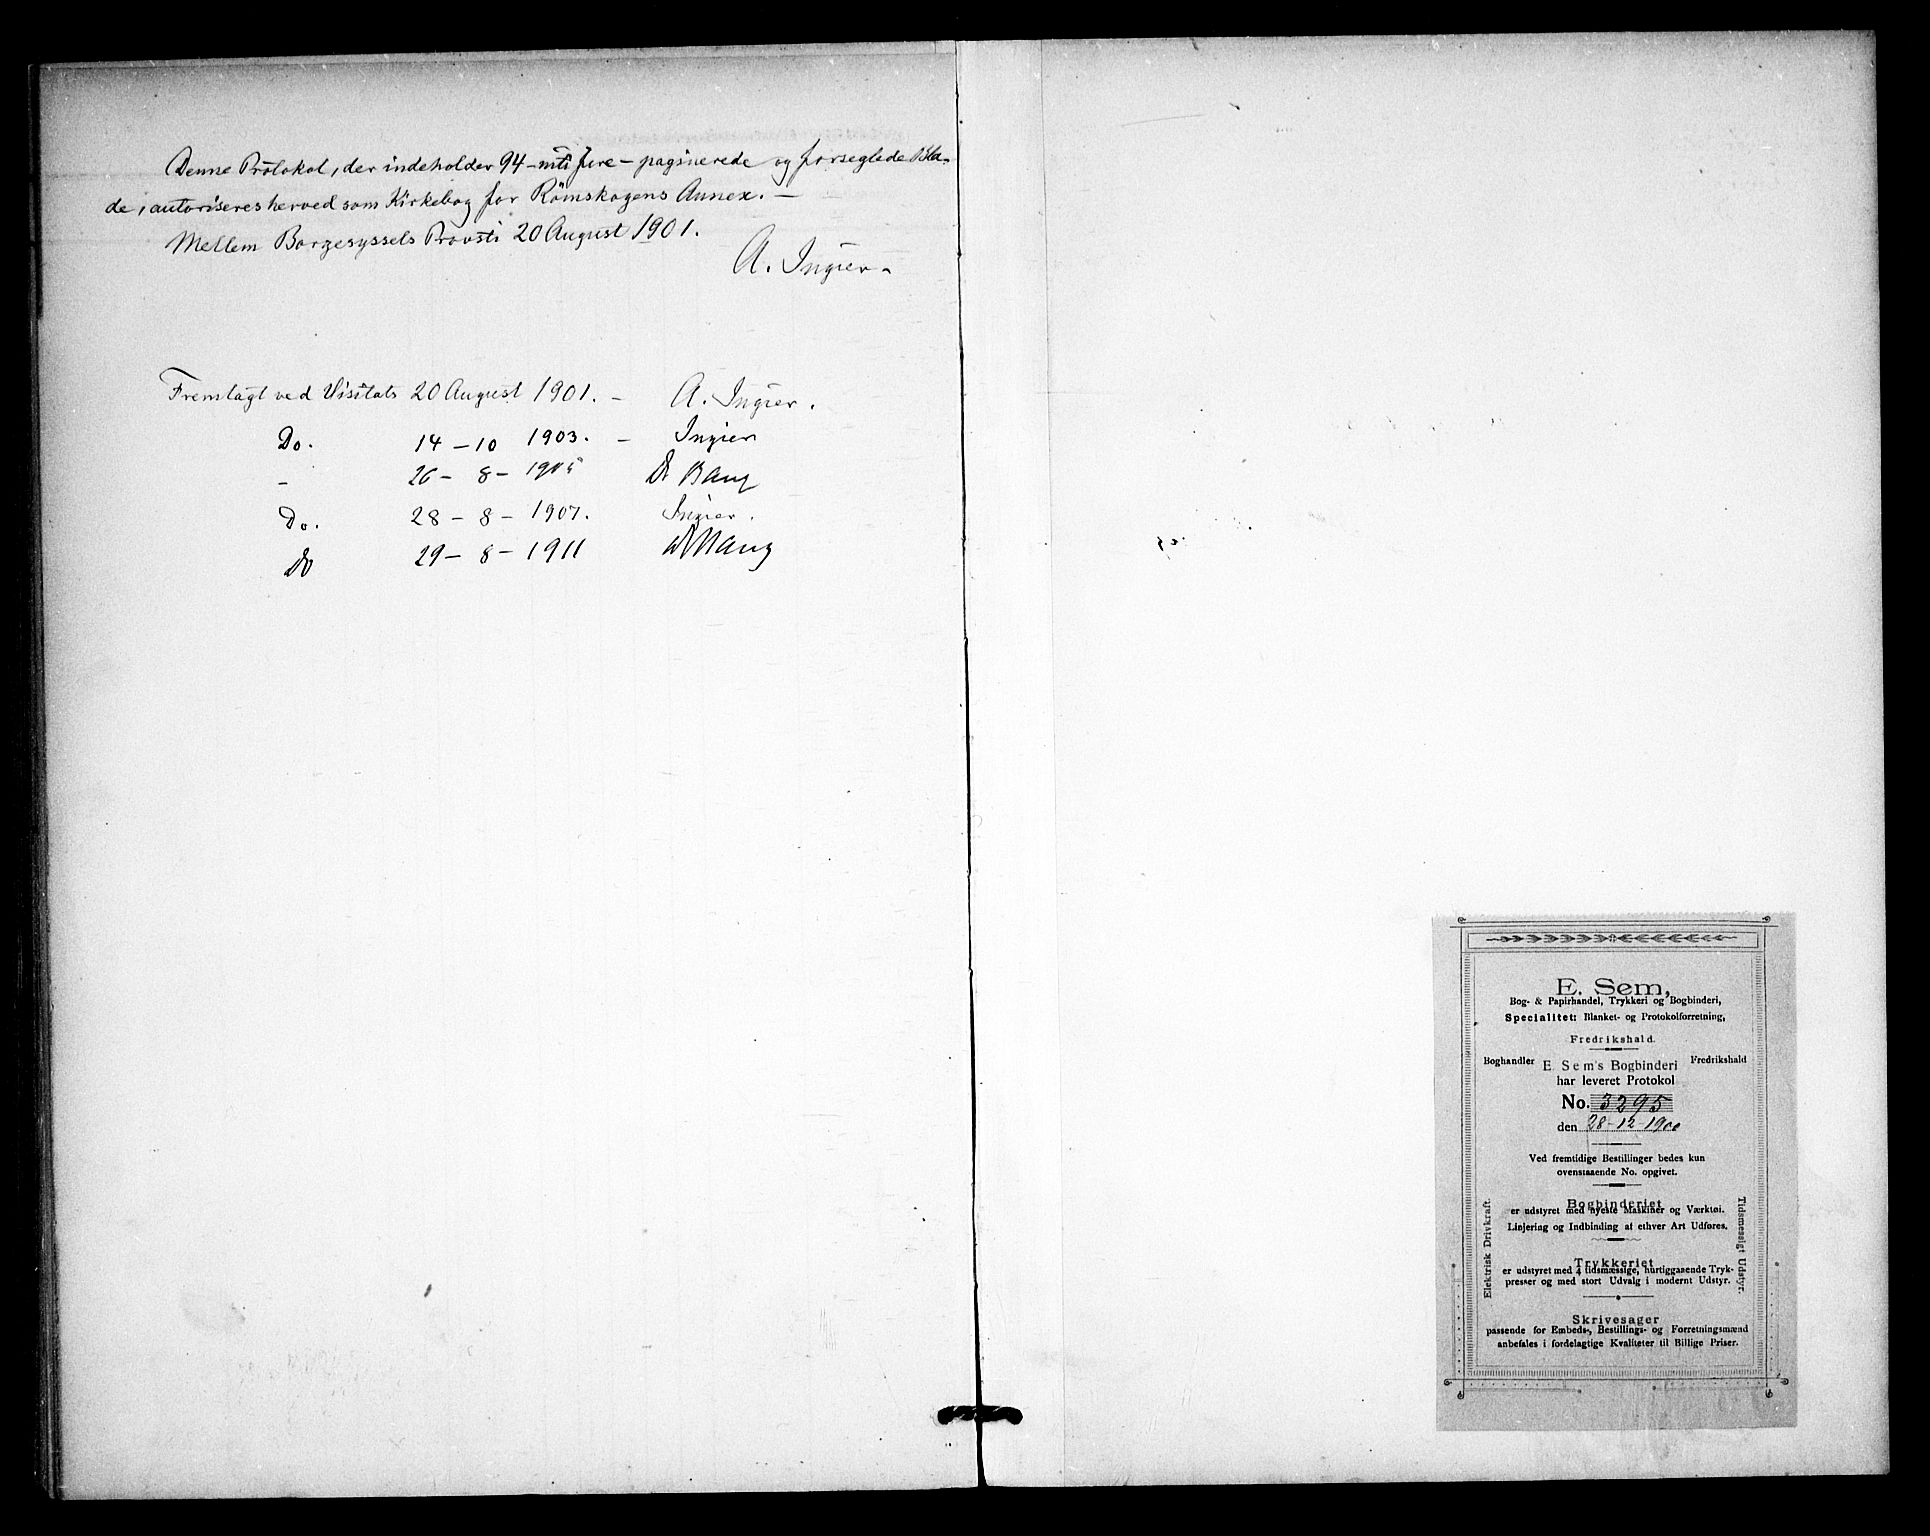 Denne Protokol, der indeholder 94 – nitti fire – paginerede og forseglede Bla-
de, autoriseres herved som Kirkebog for Römskogens Annex. –
Mellem Borgesyssels Provsti 20 August 1901.
A. Ingier.
Fremlagt ved Visitats 20 August 1901. – A. Ingier.
Do. 14 – 10 1903. – Ingier
– 26 – 8 – 1905 Dr Bang
Do. 28 – 8 – 1907. Ingier.
Do 29 – 8 – 1911
E. Sem,
Bog- & Papirhandel, Trykkeri og Bogbinderi,
Specialitet: Blanket- og Protokolforretning,
Fredrikshald.
Boghandler E. Sem's Bogbinderi Fredrikshald
har leveret Protokol
No. 3295
den 28-12-1900
Ved fremtidige Bestillinger bedes kun
ovenstaaende No. opgivet.
Bogbinderiet
er udstyret med nyeste Maskiner og Værktøi.
Linjering og Indbinding af ethver Art Udføres.
Trykkeriet
er udstyret med 4 tidsmæssige, hurtiggaaende Tryk-
presser og med stort Udvalg i modernt Udstyr.
Skrivesager
passende for Embeds-, Bestillings- og Forretningsmænd
anbefales i fordelagtige Kvaliteter til Billige Priser.
Elektrisk Drivkraft.
Tidsmessigt Udstyr.